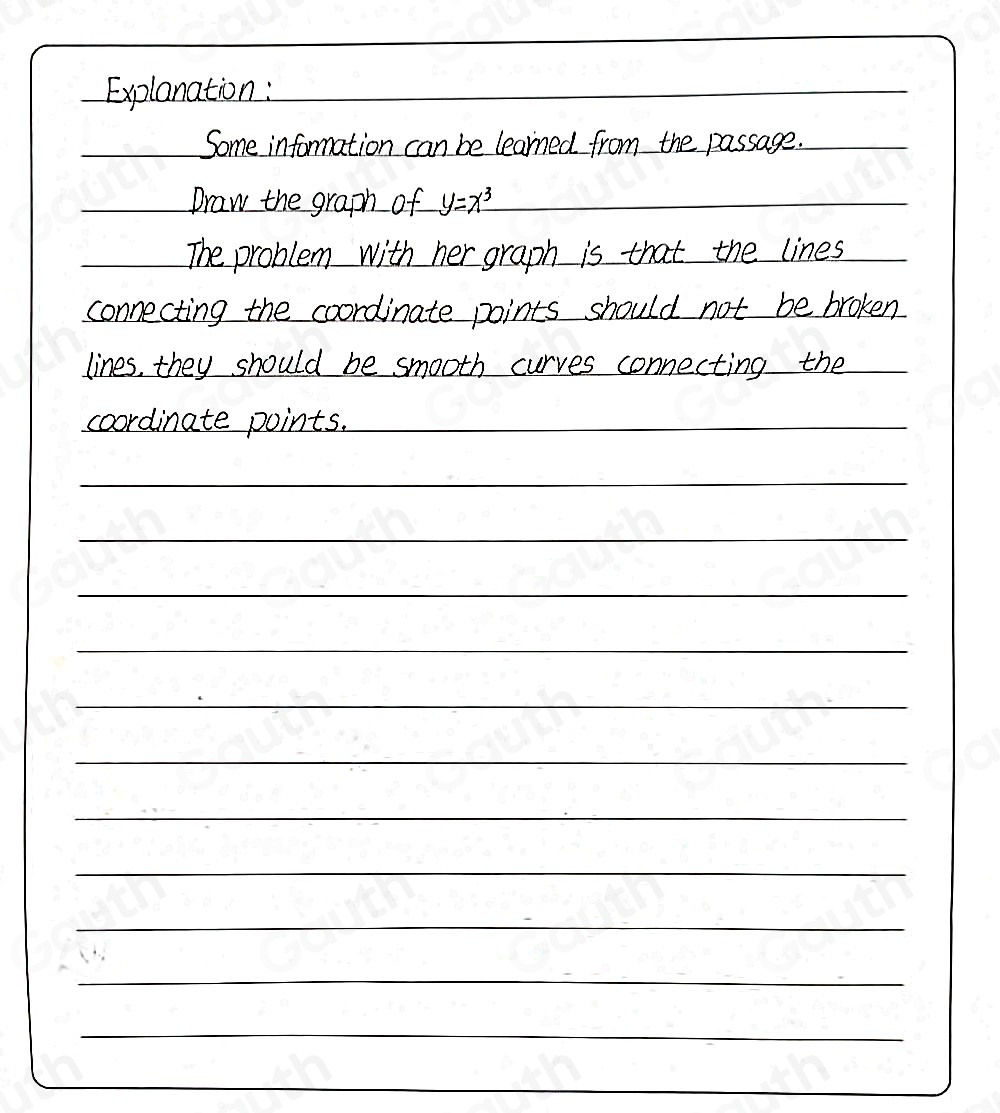 Explanation:
Some information can be learned from the passage.
Draw the graph of y=x³
The problem with her graph is that the lines
connecting the coordinate points should not be broken
lines. they should be smooth curves connecting the
coordinate points.